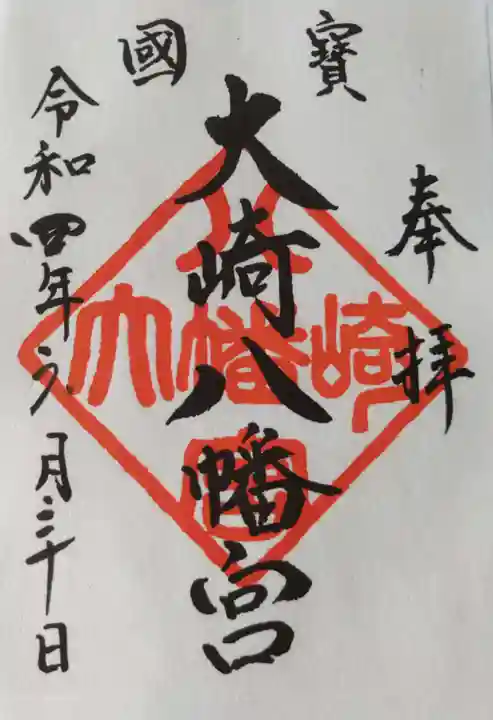 奉拝
國寶
大崎八幡宮
令和四年六月三十日
大崎八幡宮